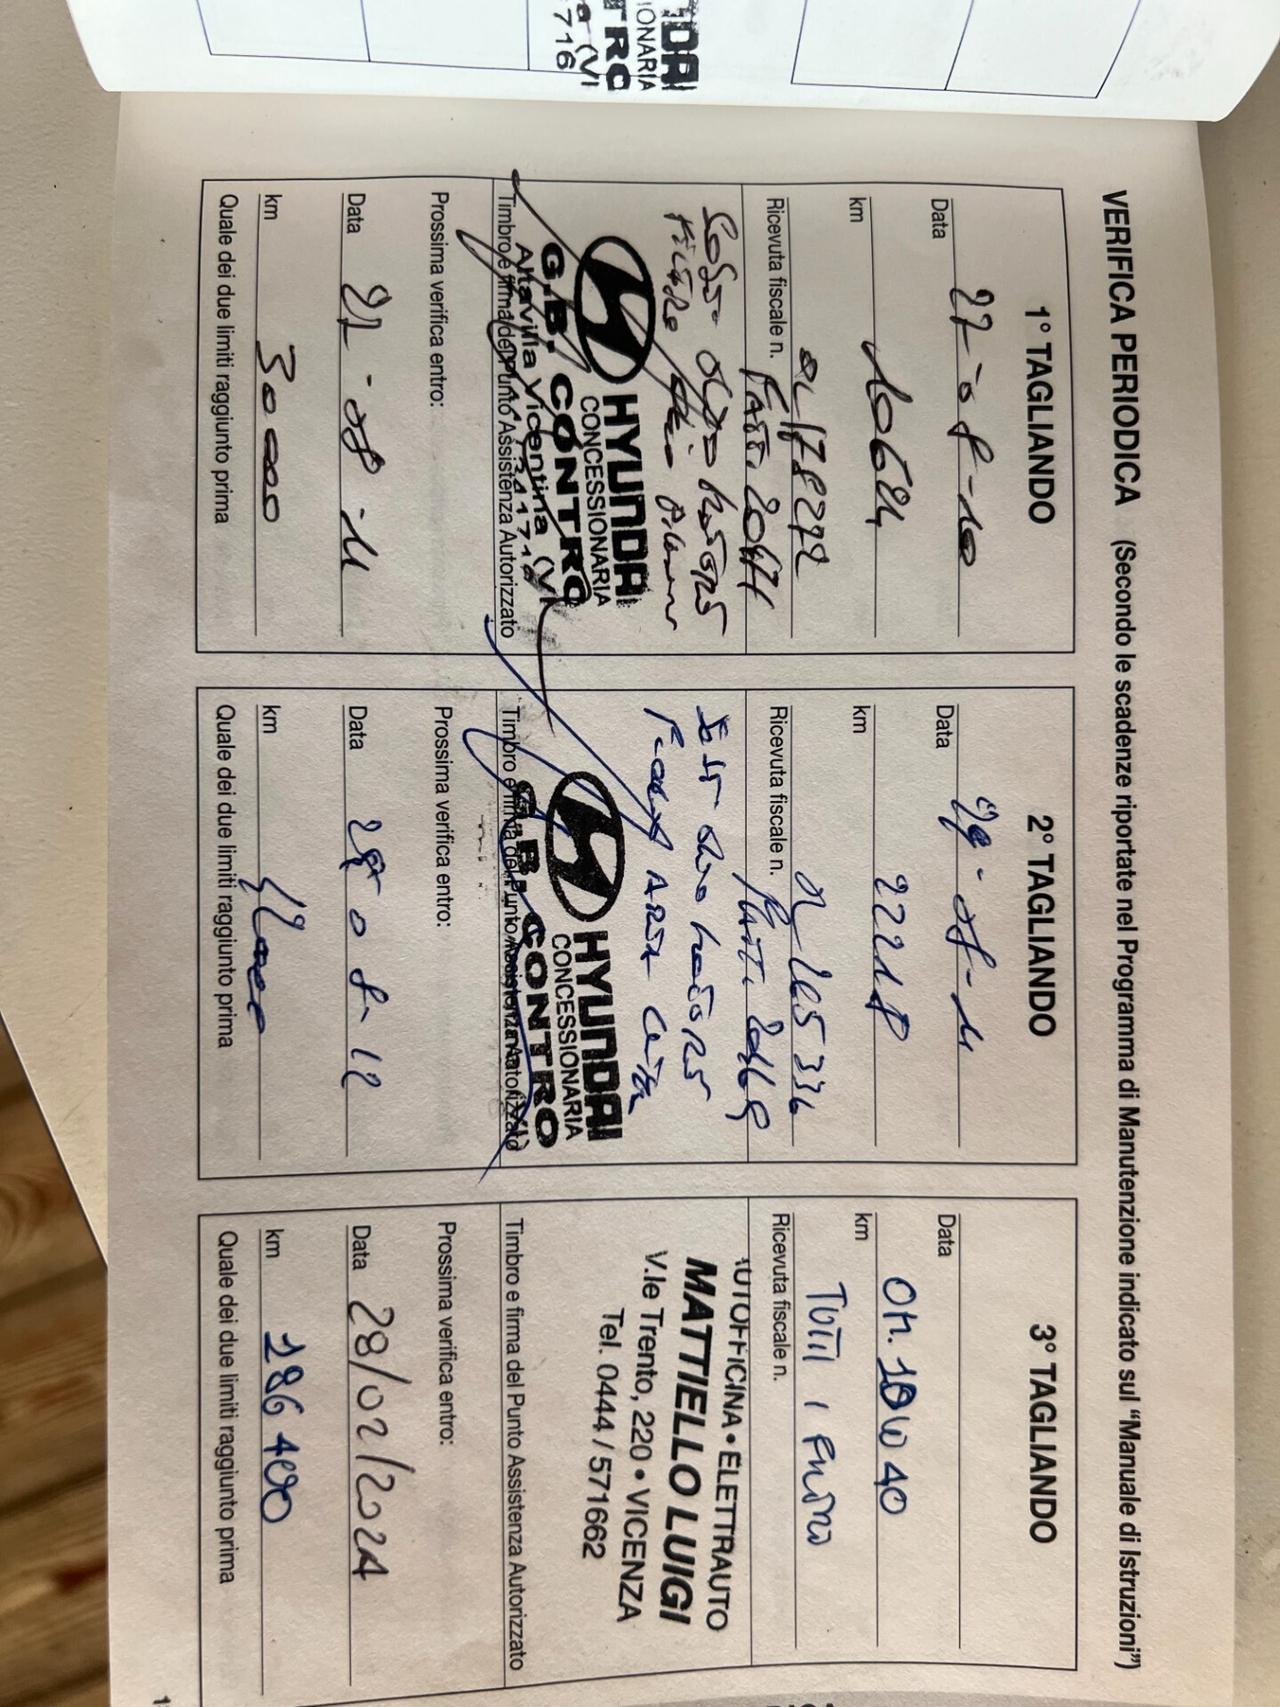 VERIFICA PERIODICA (Secondo le scadenze riportate nel Programma di Manutenzione indicato sul "Manuale di Istruzioni")
1° TAGLIANDO
Data 27-08-10
km 10624
Ricevuta fiscale n.
HYUNDAI
CONCESSIONARIA
G.B. CONTRO
Altavilla Vicentina (VI)
Timbro e firma del Punto Assistenza Autorizzato
Prossima verifica entro:
Data 27-08-11
km 30000
Quale dei due limiti raggiunto prima
2° TAGLIANDO
Data 29-08-11
km 22218
Ricevuta fiscale n. 265336
HYUNDAI
CONCESSIONARIA
G.B. CONTRO
Timbro e firma del Punto Assistenza Autorizzato
Prossima verifica entro:
Data 08-12
km
Quale dei due limiti raggiunto prima
3° TAGLIANDO
Data
km 10W40
Ricevuta fiscale n. TUTTI I
AUTOFFICINA • ELETTRAUTO
MATTIELLO LUIGI
V.le Trento, 220 • VICENZA
Tel. 0444 / 571662
Timbro e firma del Punto Assistenza Autorizzato
Prossima verifica entro:
Data 28/02/2024
km 186400
Quale dei due limiti raggiunto prima